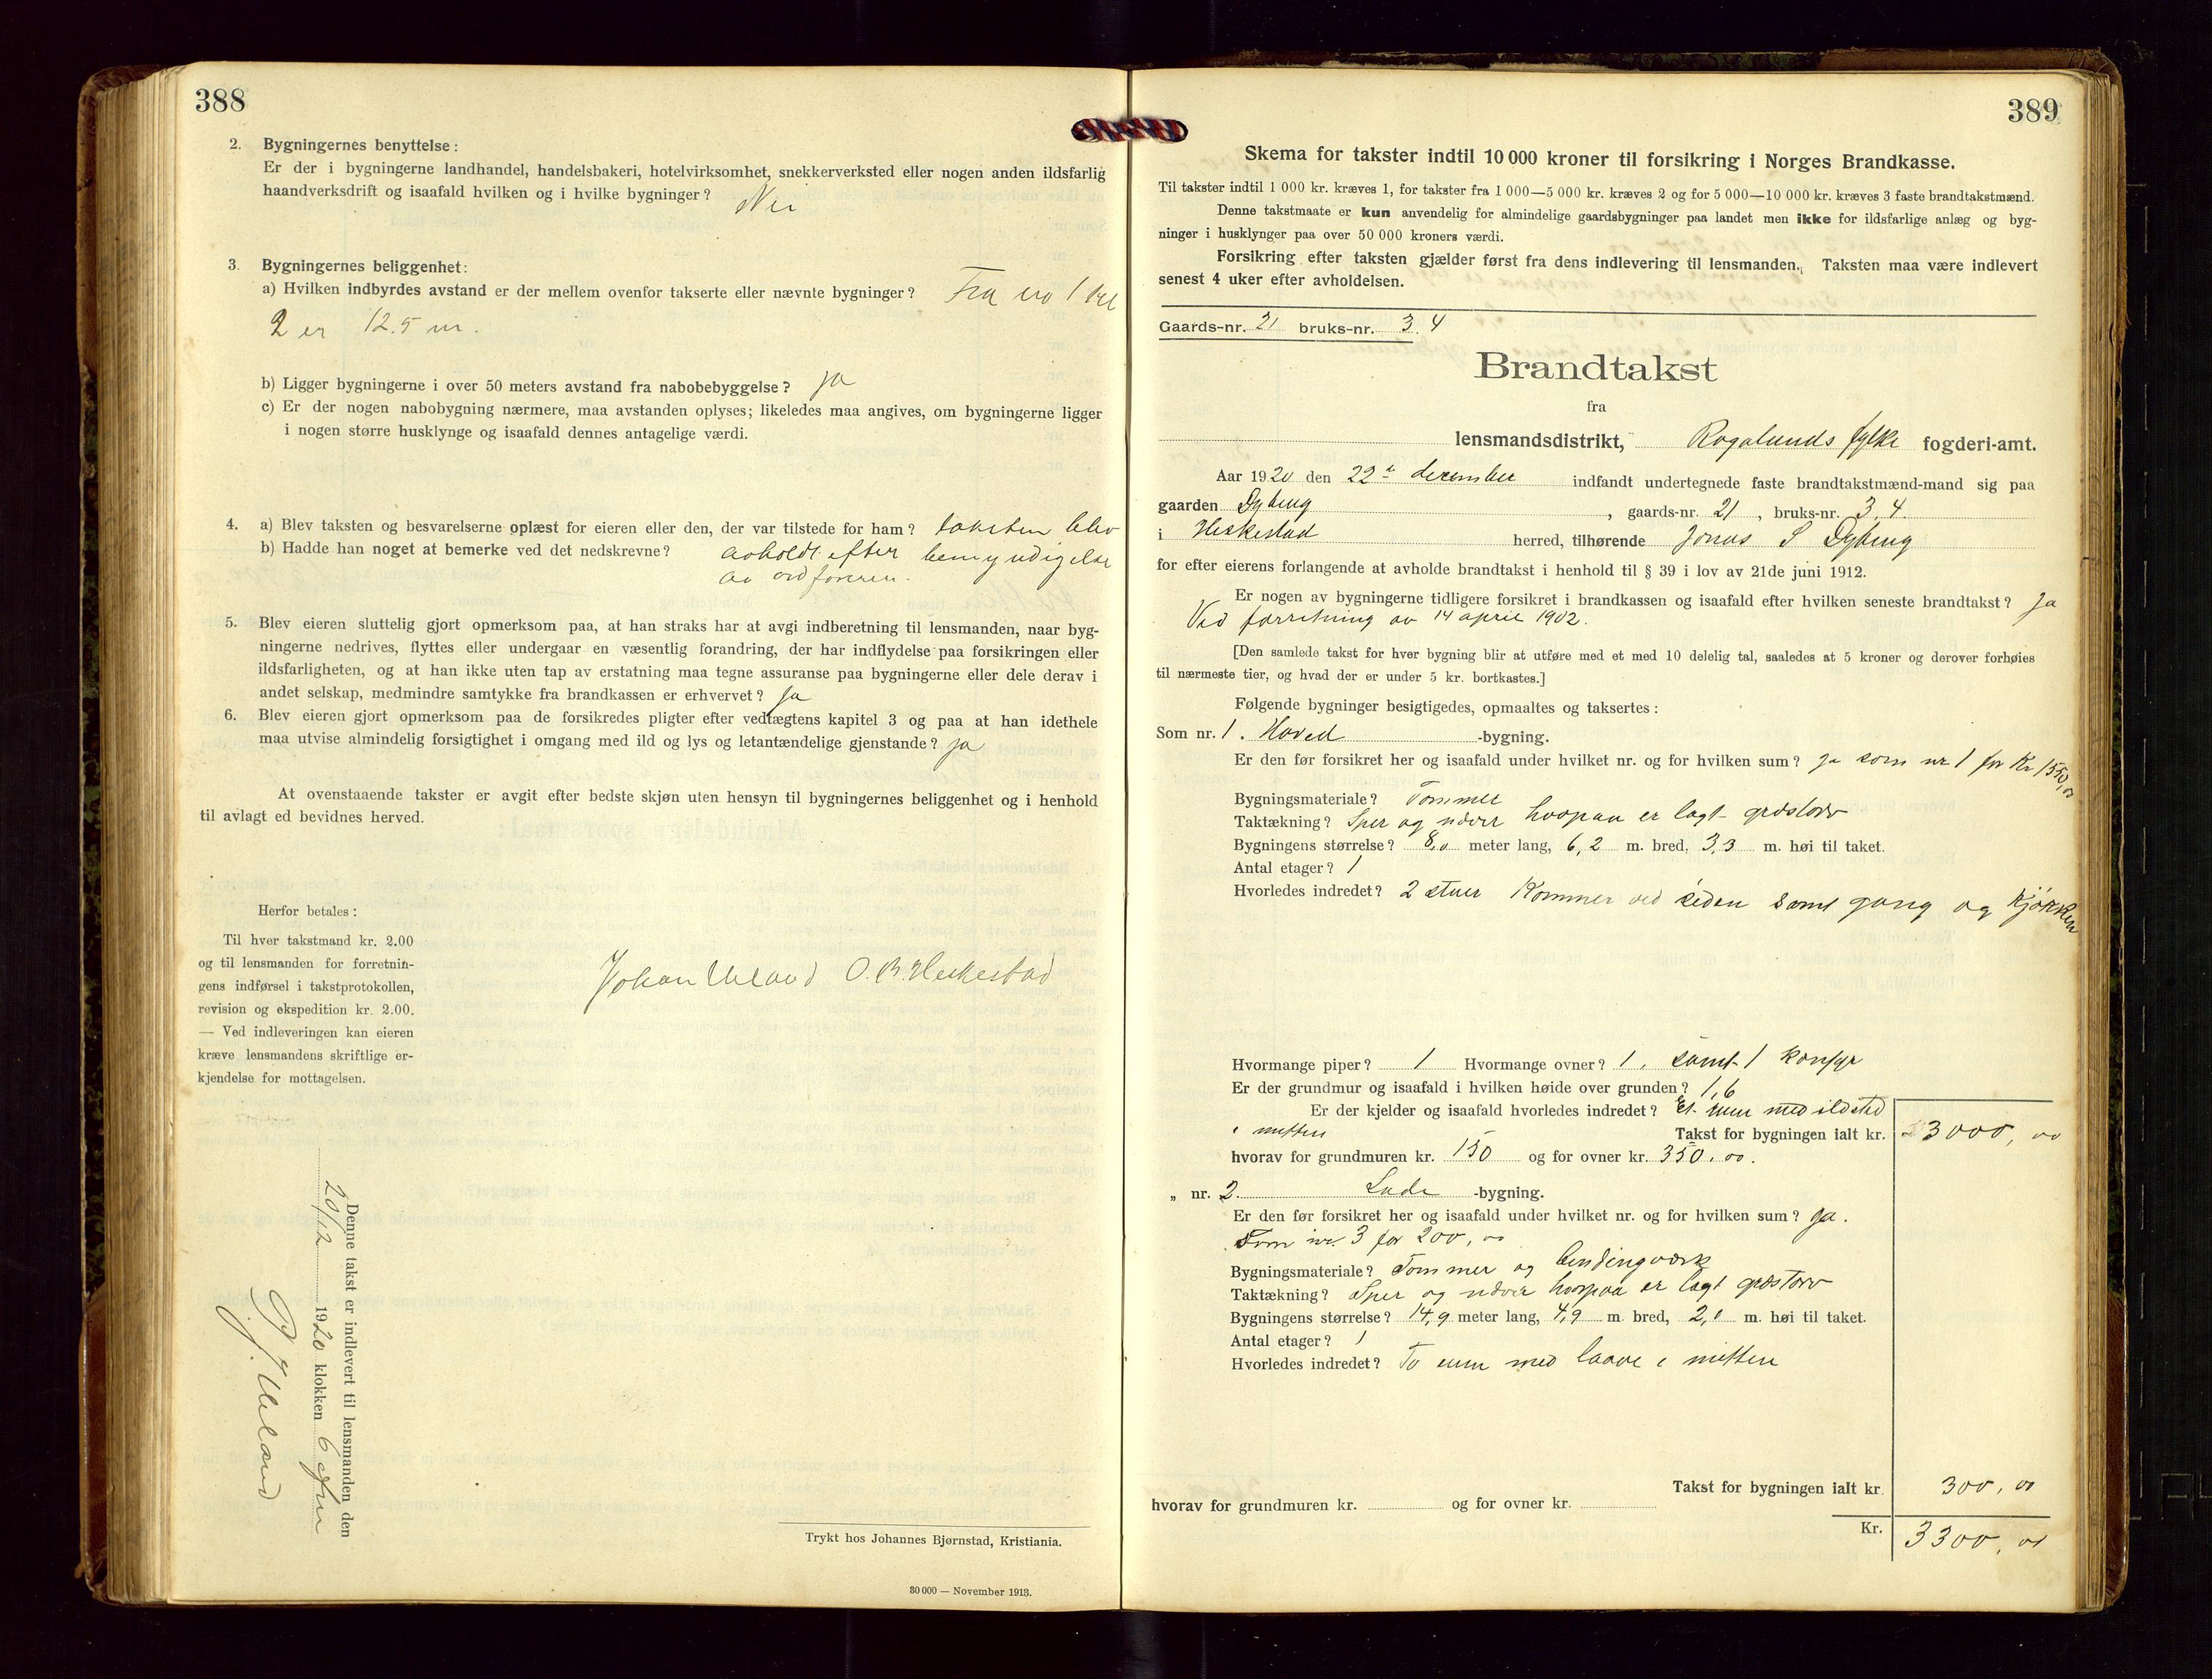 388
2. Bygningernes benyttelse:
Er der i bygningerne landhandel, handelsbakeri, hotelvirksomhet, snekkerverksted eller nogen anden ildsfarlig
haandverksdrift og isaafald hvilken og i hvilke bygninger? Nei
3. Bygningernes beliggenhet:
a) Hvilken indbyrdes avstand er der mellem ovenfor takserte eller nævnte bygninger? Fra no 1 til
2 er 12.5 m.
b) Ligger bygningerne i over 50 meters avstand fra nabobebyggelse? ja
c) Er der nogen nabobygning nærmere, maa avstanden oplyses; likeledes maa angives, om bygningerne ligger
i nogen større husklynge og isaafald dennes antagelige værdi.
4. a) Blev taksten og besvarelserne oplæst for eieren eller den, der var tilstede for ham? taksten blev
b) Hadde han noget at bemerke ved det nedskrevne? avholdt efter bemyndigelse
av ordføreren.
5. Blev eieren sluttelig gjort opmerksom paa, at han straks har at avgi indberetning til lensmanden, naar byg-
ningerne nedrives, flyttes eller undergaar en væsentlig forandring, der har indflydelse paa forsikringen eller
ildsfarligheten, og at han ikke uten tap av erstatning maa tegne assuranse paa bygningerne eller dele derav i
andet selskap, medmindre samtykke fra brandkassen er erhvervet? Ja
6. Blev eieren gjort opmerksom paa de forsikredes pligter efter vedtægtens kapitel 3 og paa at han idethele
maa utvise almindelig forsigtighet i omgang med ild og lys og letantændelige gjenstande? ja
At ovenstaaende takster er avgit efter bedste skjøn uten hensyn til bygningernes beliggenhet og i henhold
til avlagt ed bevidnes herved.
Herfor betales:
Til hver takstmand kr. 2.00
og til lensmanden for forretnin-
gens indførsel i takstprotokollen,
revision og ekspedition kr. 2.00.
— Ved indleveringen kan eieren
kræve lensmandens skriftlige er-
kjendelse for mottagelsen.
Johan Ueland O. B. Heskestad
Denne takst er indlevert til lensmanden den
20/12 1920 klokken 6 efm
P. J. Ueland
Trykt hos Johannes Bjørnstad, Kristiania.
30 000 — November 1913.
389
Skema for takster indtil 10 000 kroner til forsikring i Norges Brandkasse.
Til takster indtil 1 000 kr. kræves 1, for takster fra 1 000—5 000 kr. kræves 2 og for 5 000—10 000 kr. kræves 3 faste brandtakstmænd.
Denne takstmaate er kun anvendelig for almindelige gaardsbygninger paa landet men ikke for ildsfarlige anlæg og byg-
ninger i husklynger paa over 50 000 kroners værdi.
Forsikring efter taksten gjælder først fra dens indlevering til lensmanden. Taksten maa være indlevert
senest 4 uker efter avholdelsen.
Gaards-nr. 21 bruks-nr. 3.4
Brandtakst
fra
lensmandsdistrikt, Rogalands fylke fogderi-amt.
Aar 1920 den 22de december indfandt undertegnede faste brandtakstmænd-mand sig paa
gaarden Dybing, gaards-nr. 21, bruks-nr. 3.4
i Heskestad herred, tilhørende Jonas S Dybing
for efter eierens forlangende at avholde brandtakst i henhold til § 39 i lov av 21de juni 1912.
Er nogen av bygningerne tidligere forsikret i brandkassen og isaafald efter hvilken seneste brandtakst? Ja
Ved forretning av 14 april 1902.
[Den samlede takst for hver bygning blir at utføre med et med 10 delelig tal, saaledes at 5 kroner og derover forhøies
til nærmeste tier, og hvad der er under 5 kr. bortkastes.]
Følgende bygninger besigtigedes, opmaaltes og taksertes:
Som nr. 1. Hoved -bygning.
Er den før forsikret her og isaafald under hvilket nr. og for hvilken sum? ja som nr 1 for Kr 1550,00
Bygningsmateriale? Tømmer
Taktækning? Sper og næver hvorpaa er lagt græstorv
Bygningens størrelse? 8,0 meter lang, 6,2 m. bred, 3,3 m. høi til taket.
Antal etager? 1
Hvorledes indredet? 2 stuer Kammer ved siden samt gang og kjøkken
Hvormange piper? 1 Hvormange ovner? 1. samt 1 komfyr
Er der grundmur og isaafald i hvilken høide over grunden? 1,6
Er der kjelder og isaafald hvorledes indredet? Et rum med ildsted
i mitten Takst for bygningen ialt kr. 3000,00
hvorav for grundmuren kr. 150 og for ovner kr. 350.00.
„ nr. 2. Lade -bygning.
Er den før forsikret her og isaafald under hvilket nr. og for hvilken sum? ja.
Som nr. 3 for 200,00
Bygningsmateriale? Tømmer og bindingværk
Taktækning? Sper og næver hvorpaa er lagt græstorv
Bygningens størrelse? 14,9 meter lang, 4,9 m. bred, 2,0 m. høi til taket.
Antal etager? 1
Hvorledes indredet? To rum med laave i mitten
Takst for bygningen ialt kr. 300,00
hvorav for grundmuren kr. og for ovner kr.
Kr. 3300,00